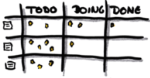 TODO DOING DONE